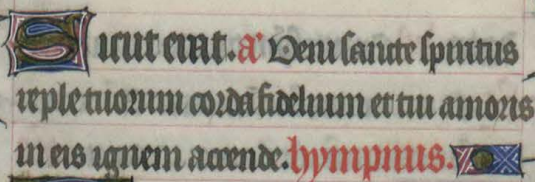 Sicut erat. a' Veni sancte spiritus
reple tuorum corda fidelium et tui amoris
in eis ignem accende. hympnus.